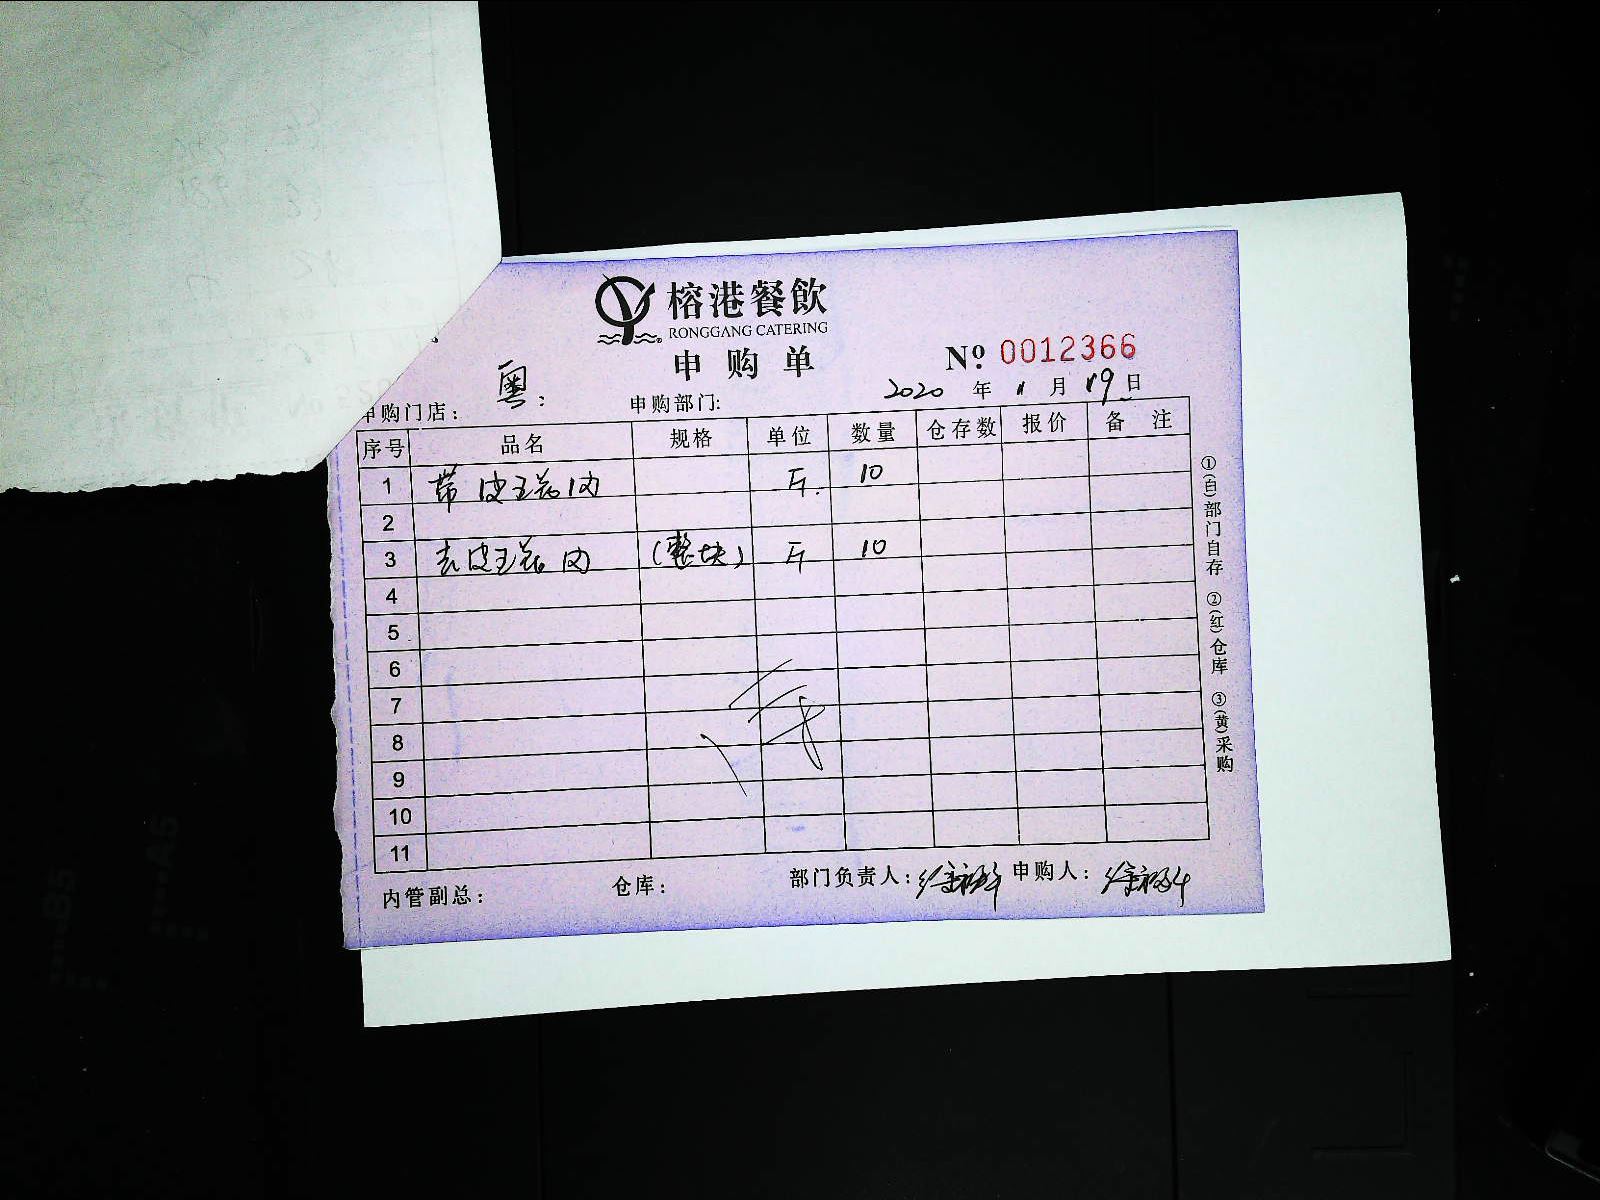 榕港餐飲
RONGGANG CATERING
申购单
Nº 0012366
2020 年 11 月 19 日
申购门店： 粤： 申购部门:
序号 品名 规格 单位 数量 仓存数 报价 备 注
1 带皮五花肉 斤. 10
2
3 去皮五花肉 (整块) 斤 10
4
5
6
7
8
9
10
11
内管副总： 仓库： 部门负责人: 申购人:
①(白)部门自存 ②(红)仓库 ③(黄)采购